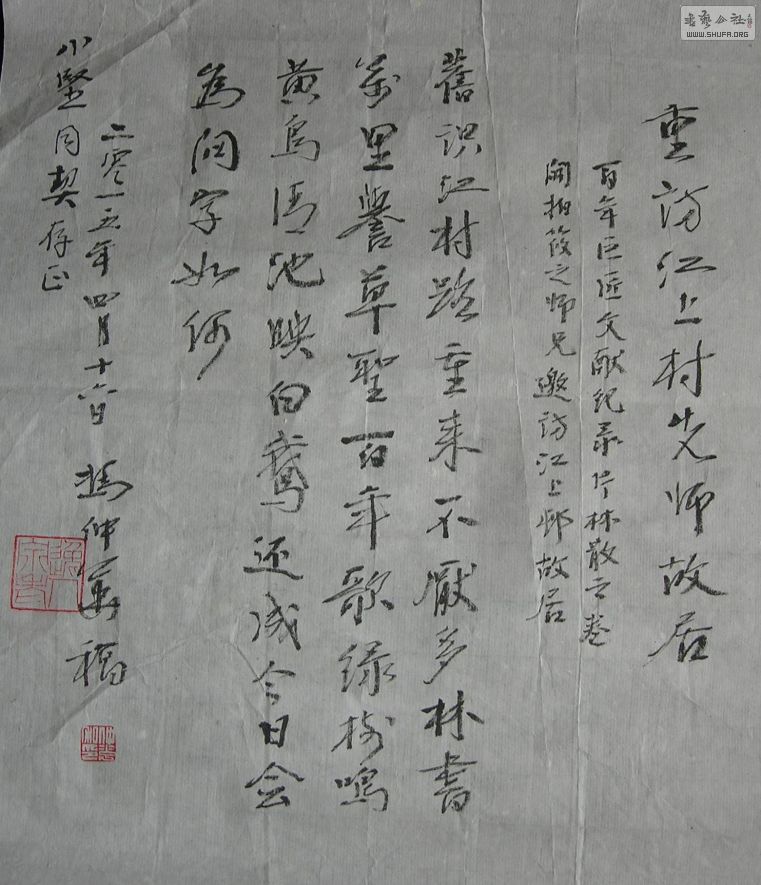 重访江上村先师故居
百年巨匠文献纪录片林散之卷
开拍筱之师兄邀访江上邨故居
舊识江村路重来不厭多林書
万里誉草聖百年歌绿树鸣
黄鸟清池映白鹅还成今日会
為问字如何
二零一五年四月十六日 冯仲 稿
小坚同契存正
書艺公社
WWW.SHUFA.ORG